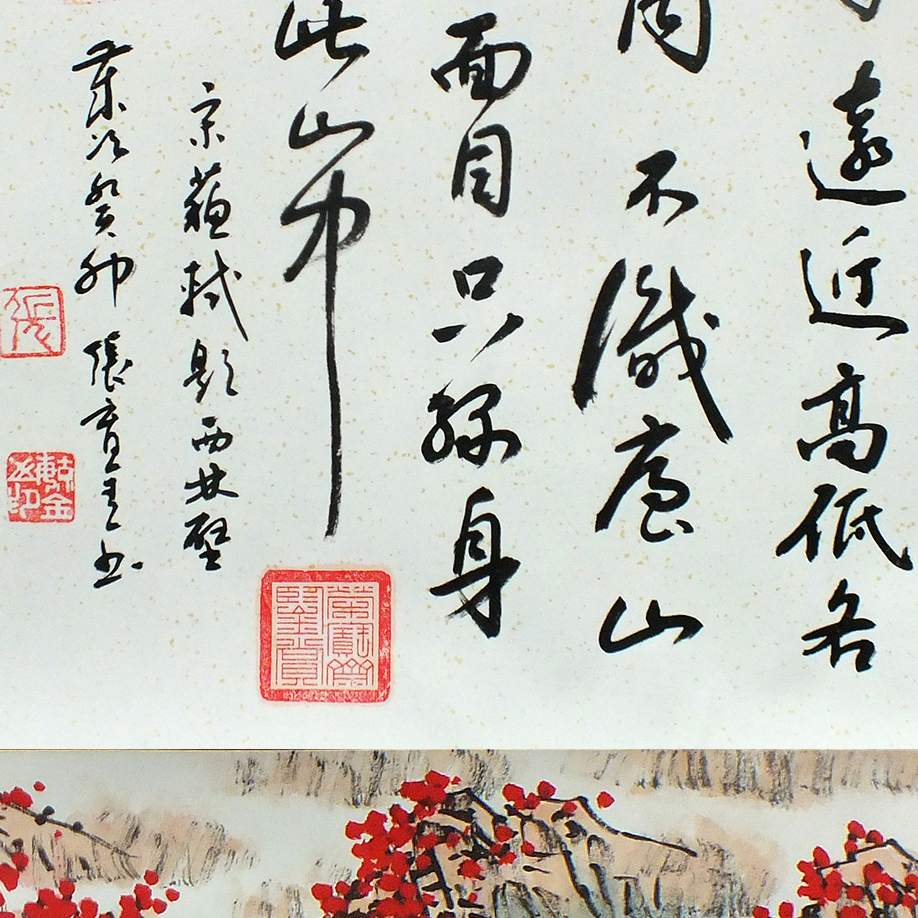 遠近高低各
同不識廬山
面目只緣身
此山中
宋蘇軾題西林壁
歲次癸卯張育書
張